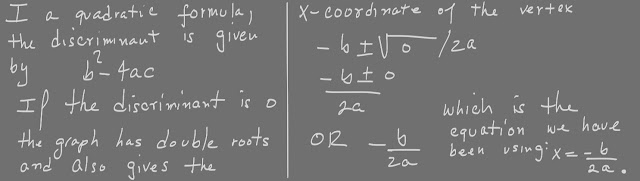 I a quadratic formula,
the discriminant is given
by b² - 4ac
If the discriminant is 0
the graph has double roots
and also gives the
x-coordinate of the vertex
-b ± √0 /2a
-b ± 0
2a
OR -b
2a
which is the
equation we have
been using: x = -b
2a.